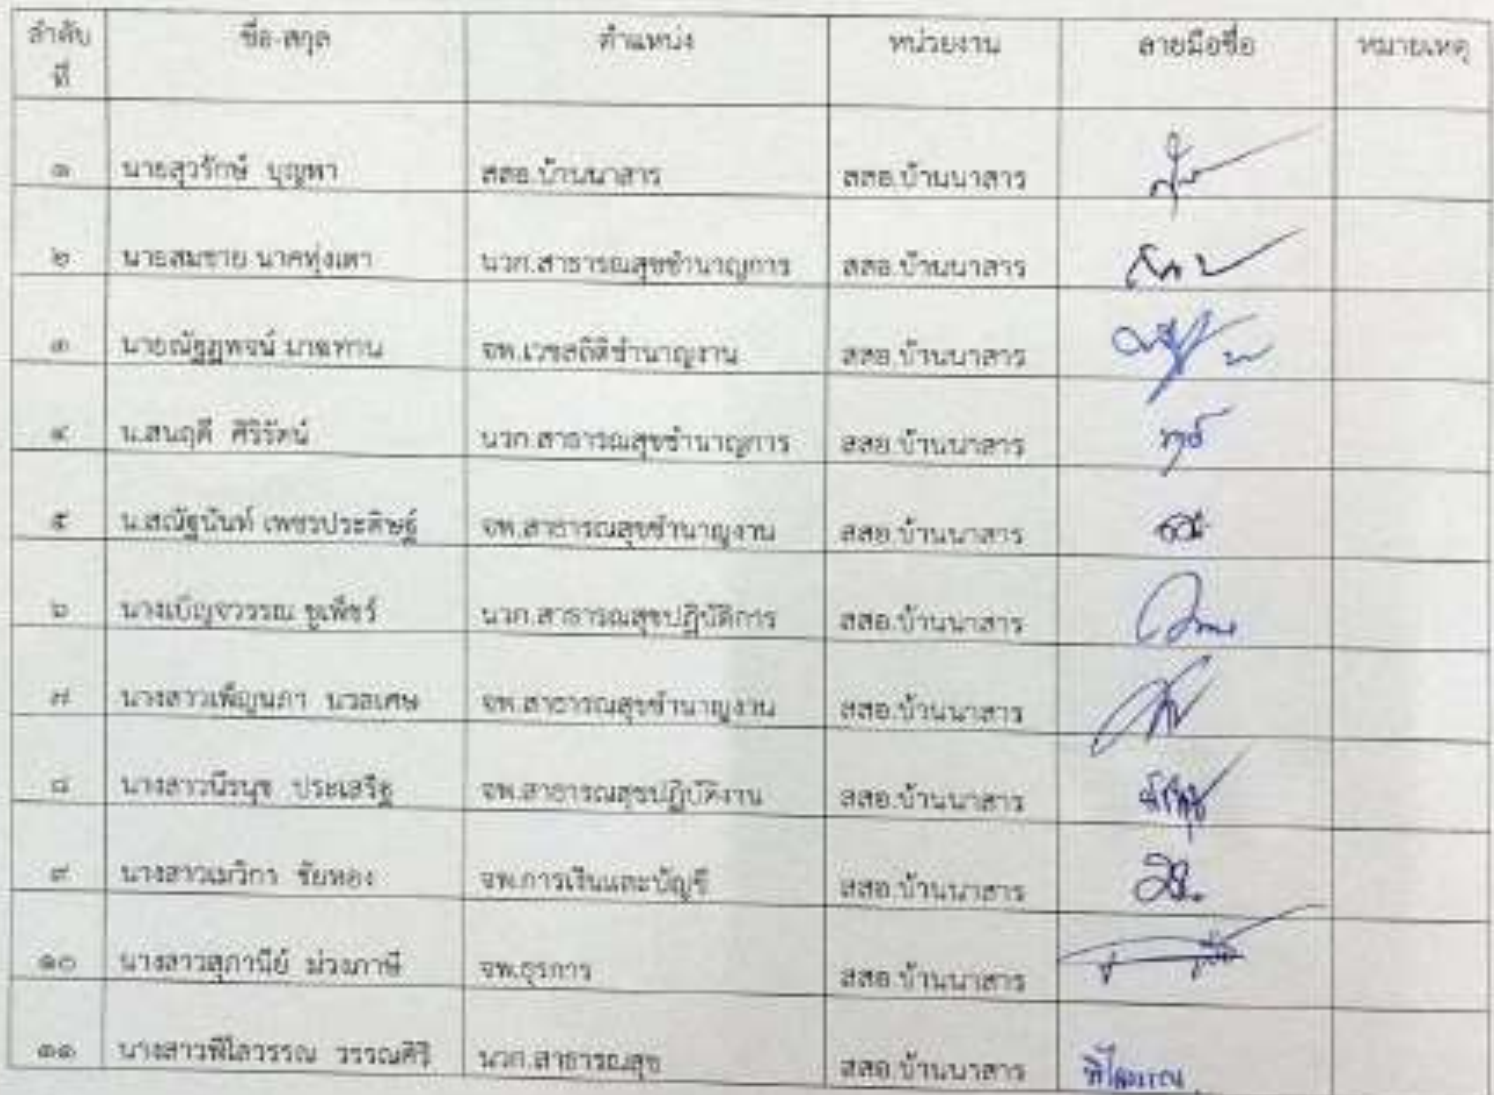 ลำดับที่ ชื่อ-สกุล ตำแหน่ง หน่วยงาน ลายมือชื่อ หมายเหตุ
๑ นายสุวรักษ์ บุญพา สสอ.บ้านนาสาร สสอ.บ้านนาสาร
๒ นายสมชาย นาคทุ่งเตา นวก.สาธารณสุขชำนาญการ สสอ.บ้านนาสาร
๓ นายณัฐฏพจน์ จพ.เวชสถิติชำนาญงาน สสอ.บ้านนาสาร
๔ น.สนฤดี ศิริรัตน์ นวก.สาธารณสุขชำนาญการ สสอ.บ้านนาสาร
๕ น.สณัฐนันท์ เพชรประดิษฐ์ จพ.สาธารณสุขชำนาญงาน สสอ.บ้านนาสาร
๖ นางเบ็ญจวรรณ ชูเพ็ชร์ นวก.สาธารณสุขปฏิบัติการ สสอ.บ้านนาสาร
๗ นางสาวเพ็ญนภา นวลเศษ จพ.สาธารณสุขชำนาญงาน สสอ.บ้านนาสาร
๘ นางสาวนีรนุช ประเสริฐ จพ.สาธารณสุขปฏิบัติงาน สสอ.บ้านนาสาร นีรนุช
๙ นางสาวเมวิกา ชัยทอง จพ.การเงินและบัญชี สสอ.บ้านนาสาร
๑๐ นางสาวสุภานีย์ ม่วงภาษี จพ.ธุรการ สสอ.บ้านนาสาร
๑๑ นางสาวพิไลวรรณ วรรณศิริ นวก.สาธารณสุข สสอ.บ้านนาสาร พิไลวรรณ